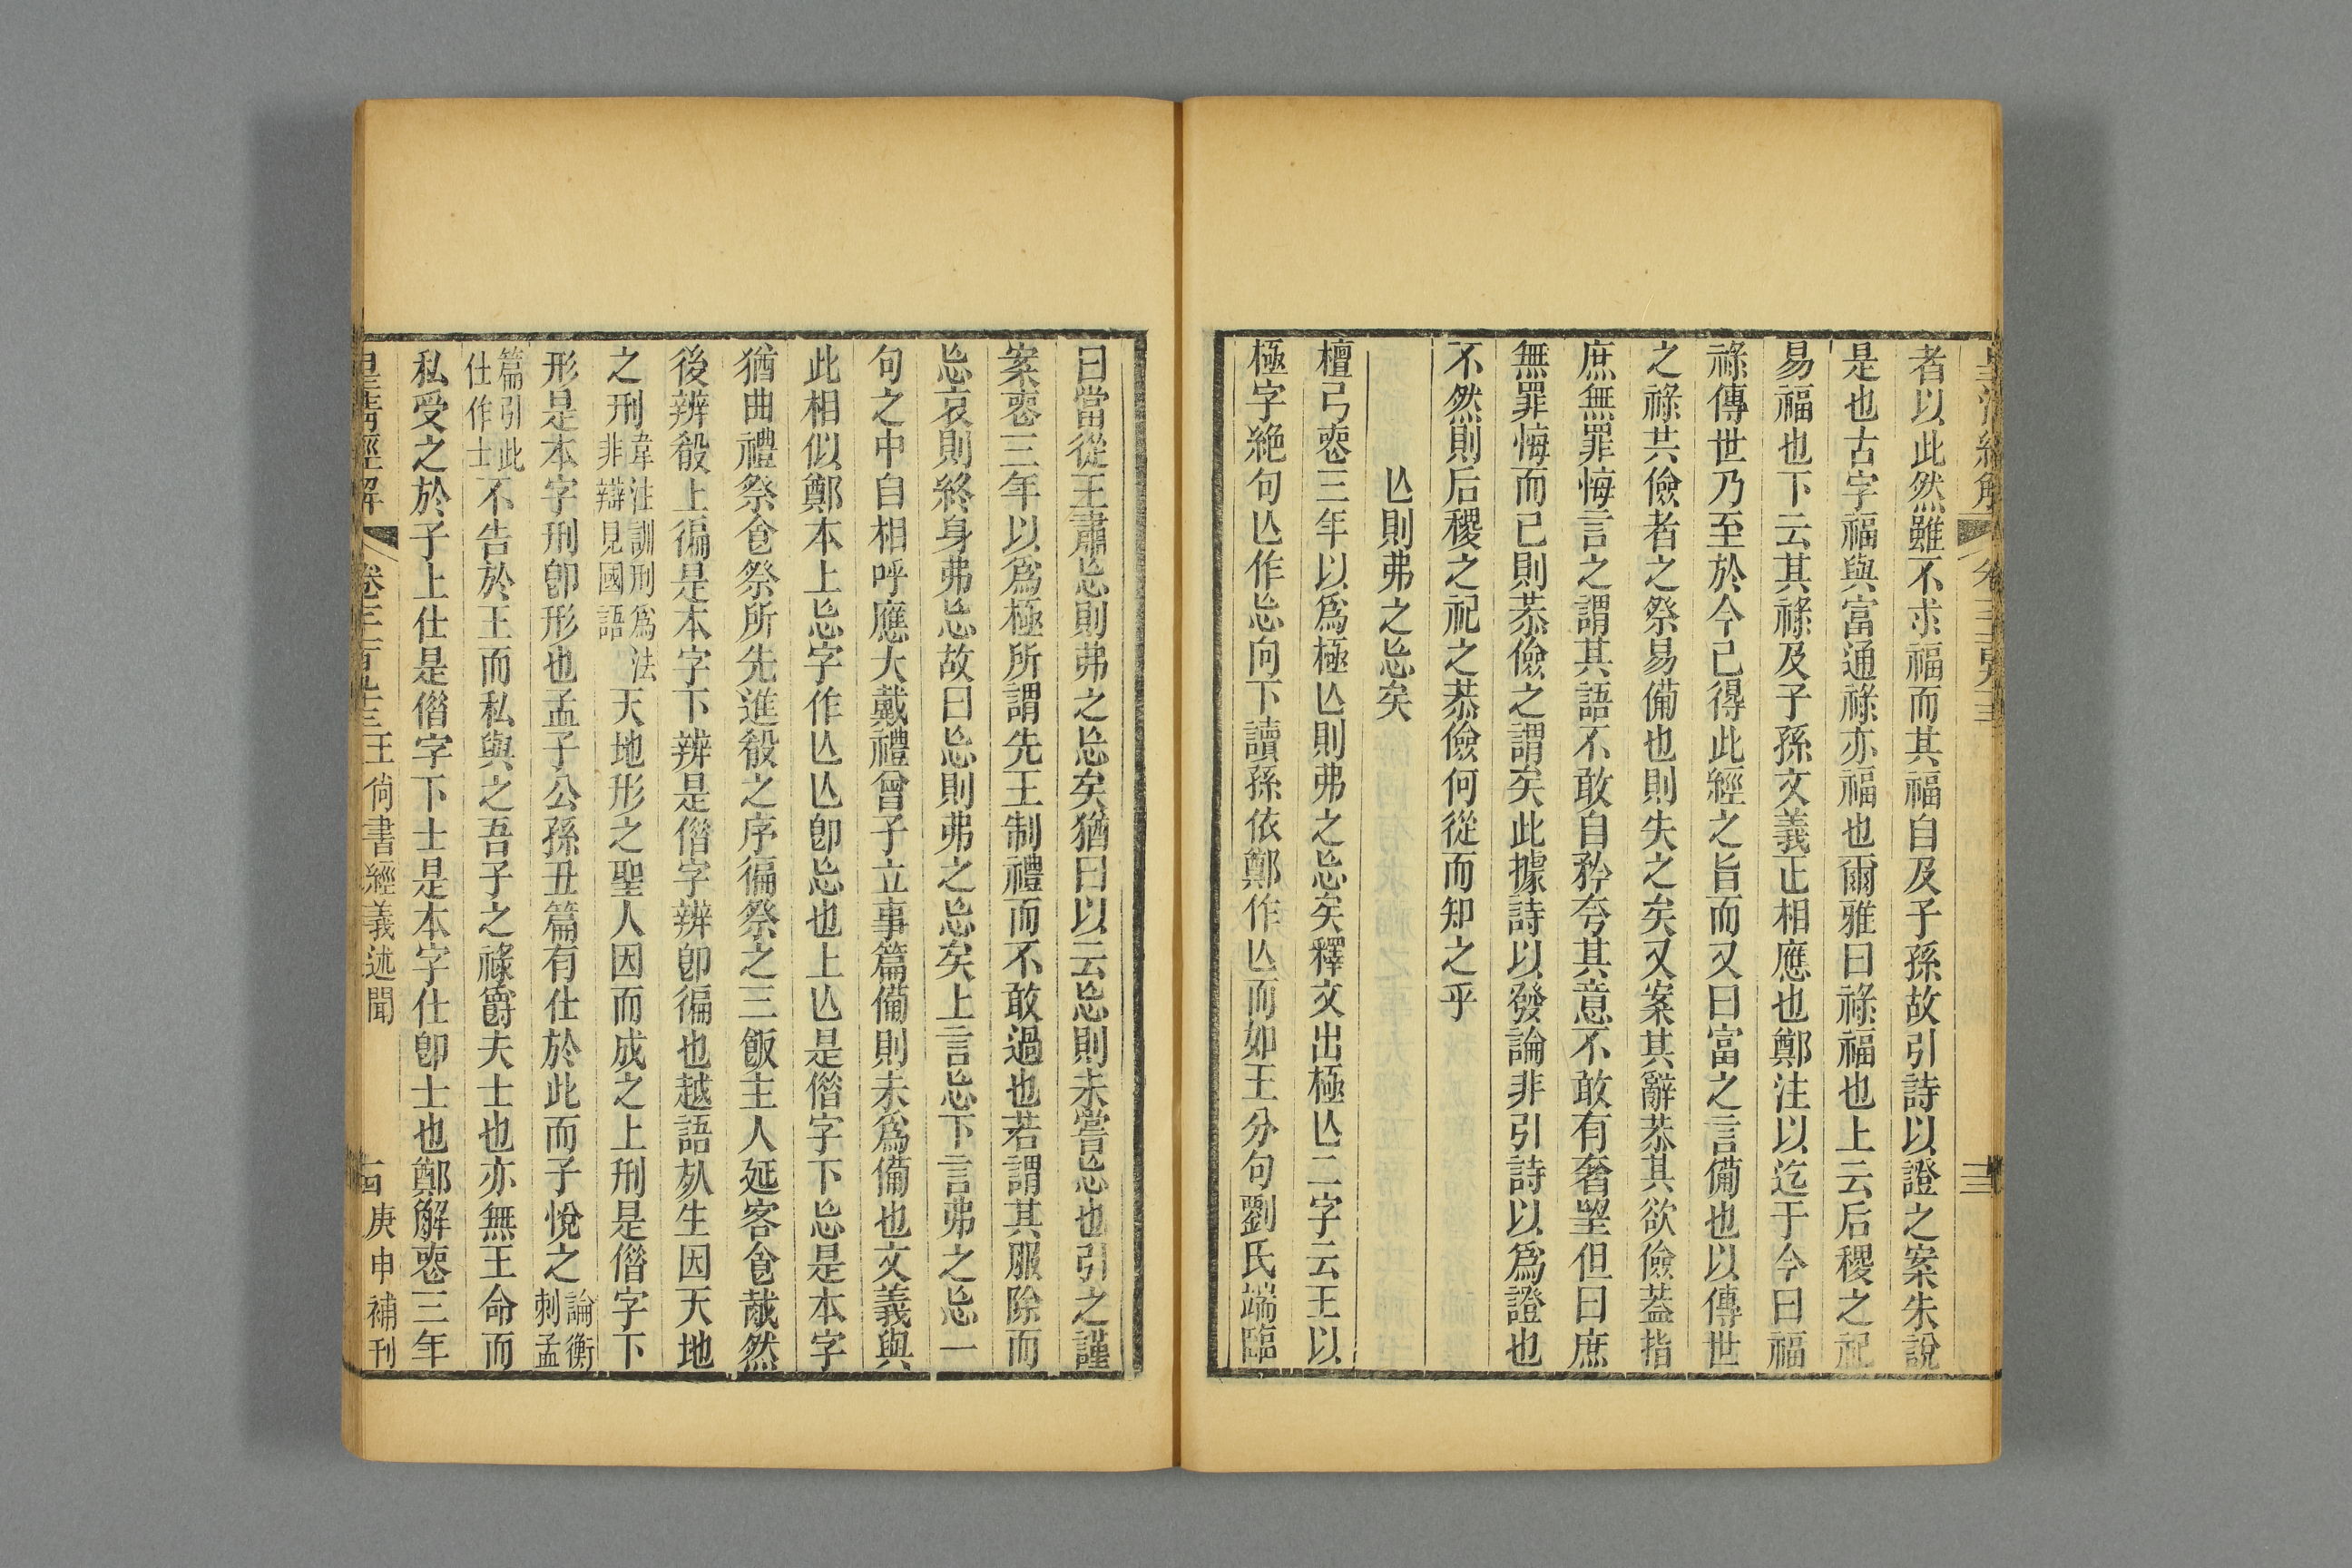 者以此然雖不求福而其福自及子孫故引詩以證之案朱說
是也古字福與富通祿亦福也爾雅曰祿福也上云后稷之祀
易福也下云其祿及子孫文義正相應也鄭注以迄于今曰福
祿傳世乃至於今已得此經之旨而又曰富之言備也以傳世
之祿共儉者之祭易備也則失之矣又案其辭恭其欲儉蓋指
庶無罪悔言之謂其語不敢自矜夸其意不敢有奢望但曰庶
無罪悔而已則恭儉之謂矣此據詩以發論非引詩以爲證也
不然則后稷之祀之恭儉何從而知之乎
亾則弗之忘矣
檀弓喪三年以爲極亾則弗之忘矣釋文出極亾二字云王以
極字絶句亾作忘向下讀孫依鄭作亾而如王分句劉氏端臨
曰當從王肅忘則弗之忘矣猶曰以云忘則未嘗忘也引之謹
案喪三年以爲極所謂先王制禮而不敢過也若謂其服除而
忘哀則終身弗忘故曰忘則弗之忘矣上言忘下言弗之忘一
句之中自相呼應大戴禮曾子立事篇備則未爲備也文義與
此相似鄭本上忘字作亾亾卽忘也上亾是偺字下忘是本字
猶曲禮祭食祭所先進殽之序徧祭之三飯主人延客食胾然
後辨殽上徧是本字下辨是偺字辨卽徧也越語死生因天地
之刑韋注訓刑爲法非辯見國語天地形之聖人因而成之上刑是偺字下
形是本字刑卽形也孟子公孫丑篇有仕於此而子悅之論衡刺孟
篇引此仕作士不告於王而私與之吾子之祿爵夫士也亦無王命而
私受之於子上仕是偺字下士是本字仕卽士也鄭解喪三年
皇淸經解 卷 王尙書經義述聞 庚申補刊